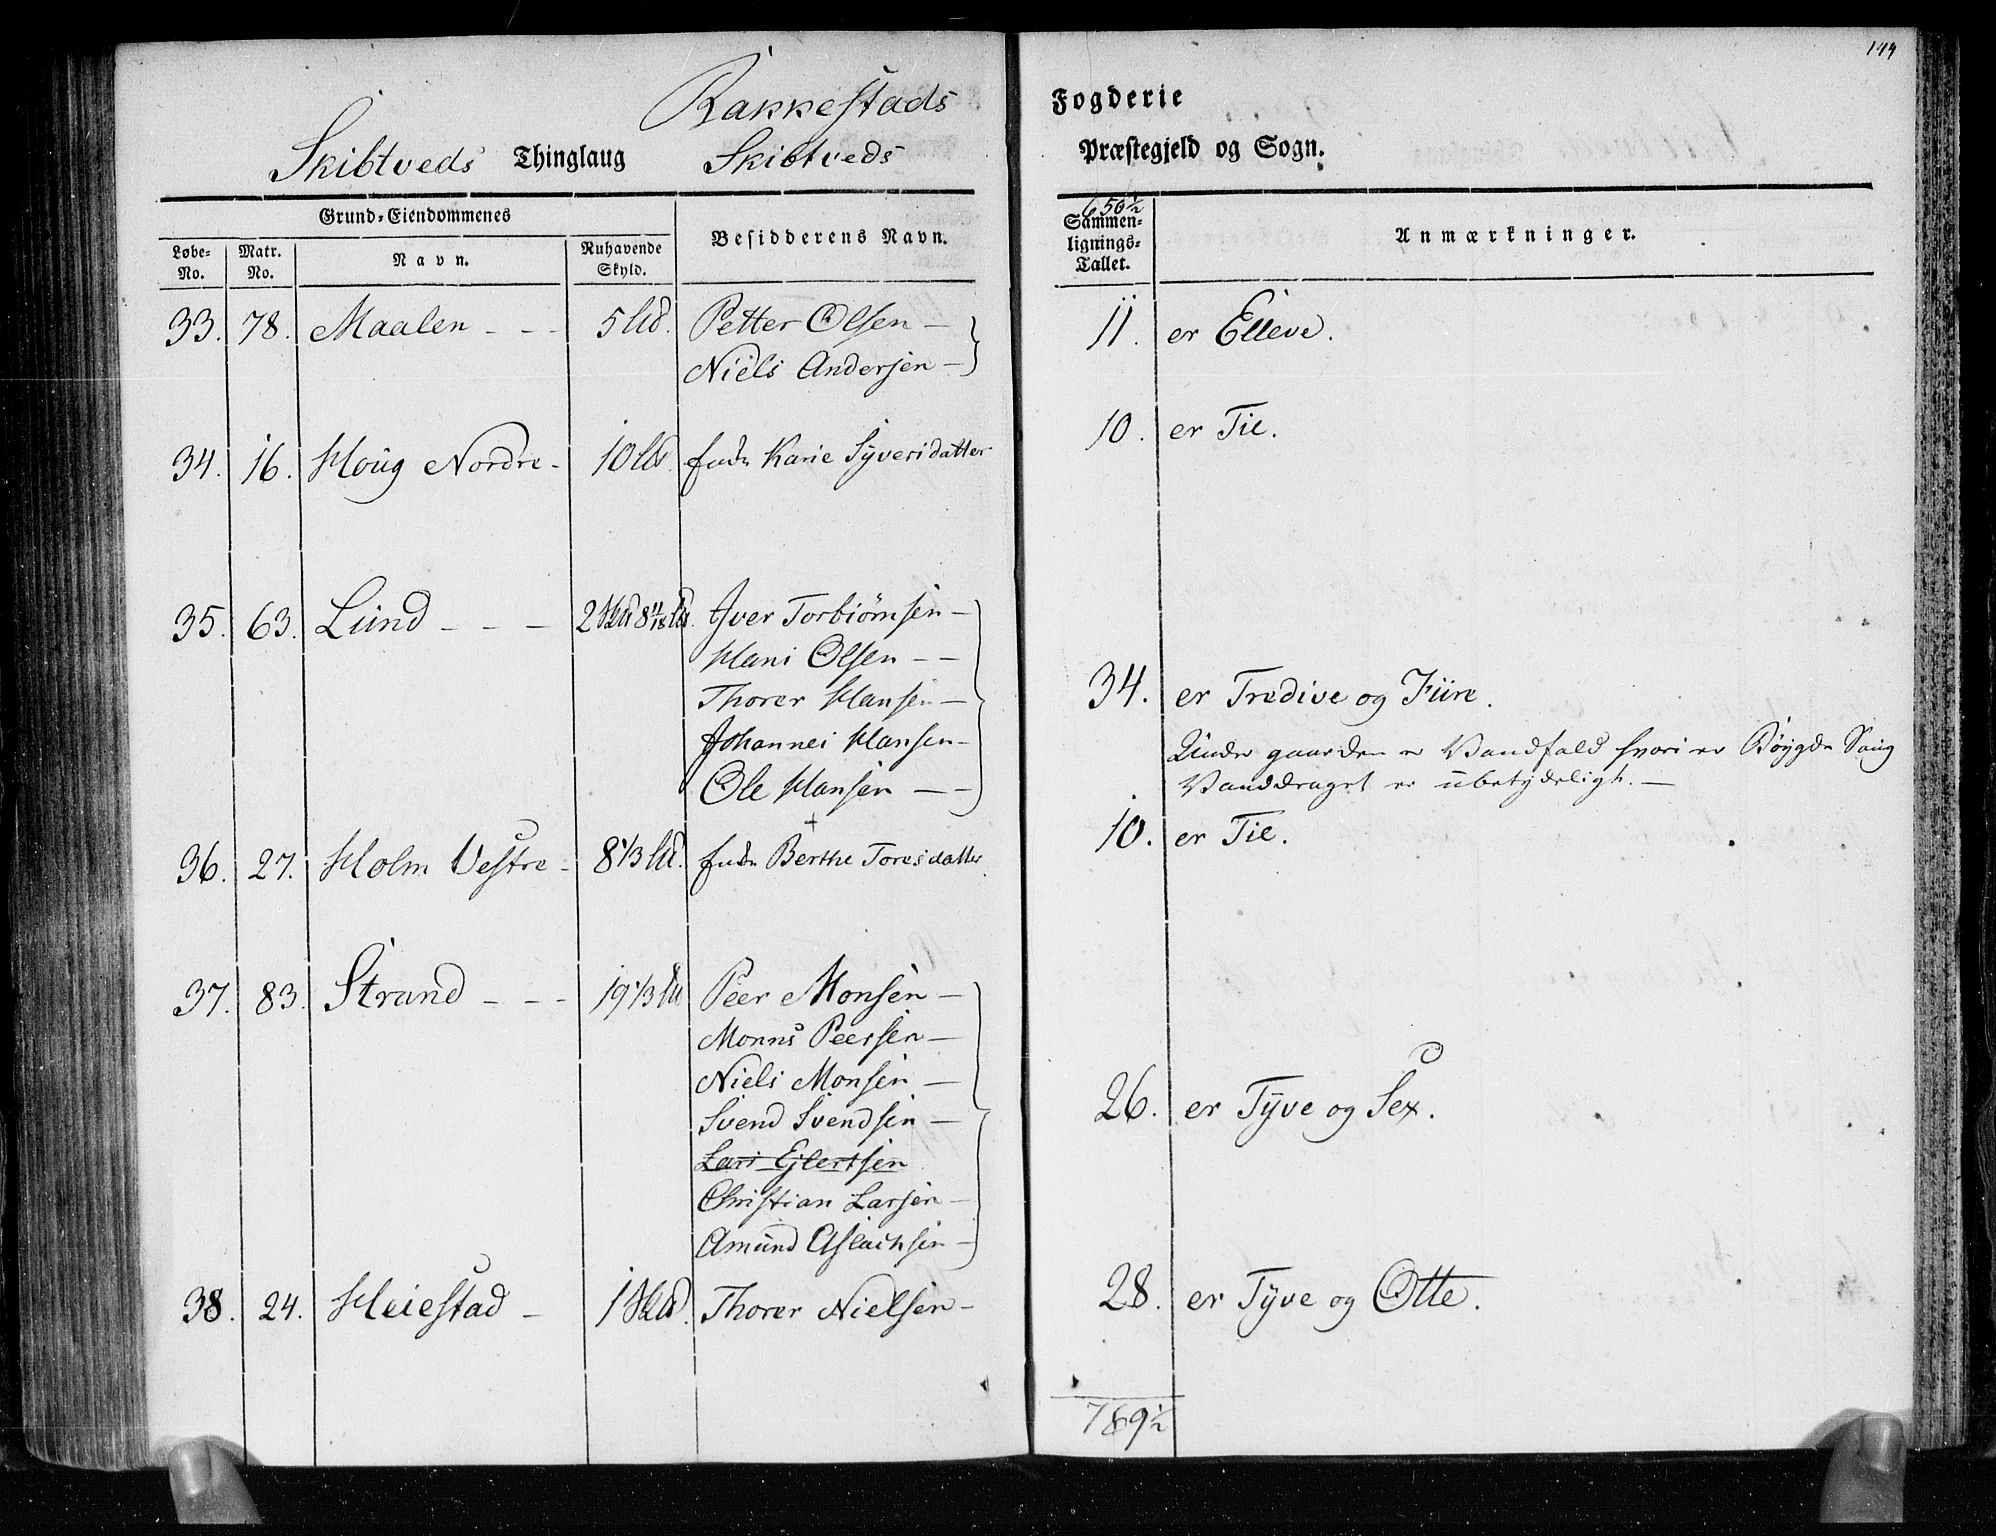 144
Rakkestads Fogderie
Skibtveds Thinglaug Skibtveds Præstegjeld og Sogn.
Grund-Eiendommenes
Løbe-No. Matr. No. Navn. Ruhavende Skyld. Besidderens Navn. Sammen-lignings-Tallet. Anmærkninger.
650½
33. 78. Maalen - - - 5 Ld. Petter Olsen - 11. er Elleve.
Niels Andersen -
34. 16. Houg Nordre - 10 Ld. Enke Karie Syversdatter 10. er Tie.
35. 63. Lund - - - 2 Skd 8 11/18 Ld. Iver Torbiørnsen -
Hans Olsen - -
Thorer Hansen - 34. er Tredive og Fiire.
Johannes Hansen -
Under gaarden er Vandfald hvori er Bøygde Saug
Ole Hansen - -
Vanddraget er ubetydeligt. -
36. 27. Holm Vestre - 8 1/3 Ld. Enke Berthe Toresdatter 10. er Tie.
37. 83. Strand - - - 19 1/3 Ld Peer Monsen -
Monns Peersen -
Niels Monsen -
Svend Svendsen - 26. er Tyve og Sex.
Lars Ejlertsen
Christian Larsen -
Amund Aslachsen -
38. 24. Heiestad - 1 Skd. Thorer Nielsen - 28. er Tyve og Otte.
769½